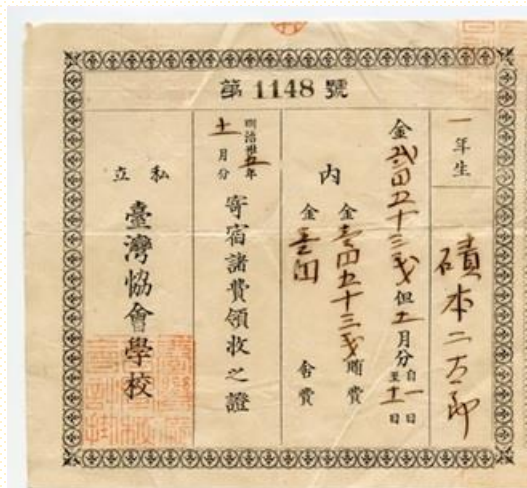 第1148號
一年生 磧本二郎
金弐円五十三戋但十一月分自一日
至十一日
内
金壱円五十三戋 賄費
金壱円 舍費
明治卅五年
十一月分
寄宿諸費領收之證
私立
臺灣協會學校